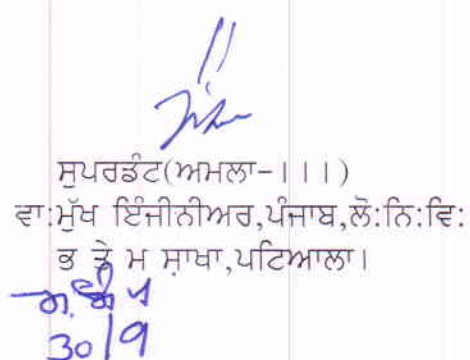 ਸੁਪਰਡੰਟ(ਅਮਲਾ-।।।)
ਵਾ:ਮੁੱਖ ਇੰਜੀਨੀਅਰ,ਪੰਜਾਬ,ਲੋ:ਨਿ:ਵਿ:
ਭ ਤੇ ਮ ਸ਼ਾਖਾ,ਪਟਿਆਲਾ।
30/9